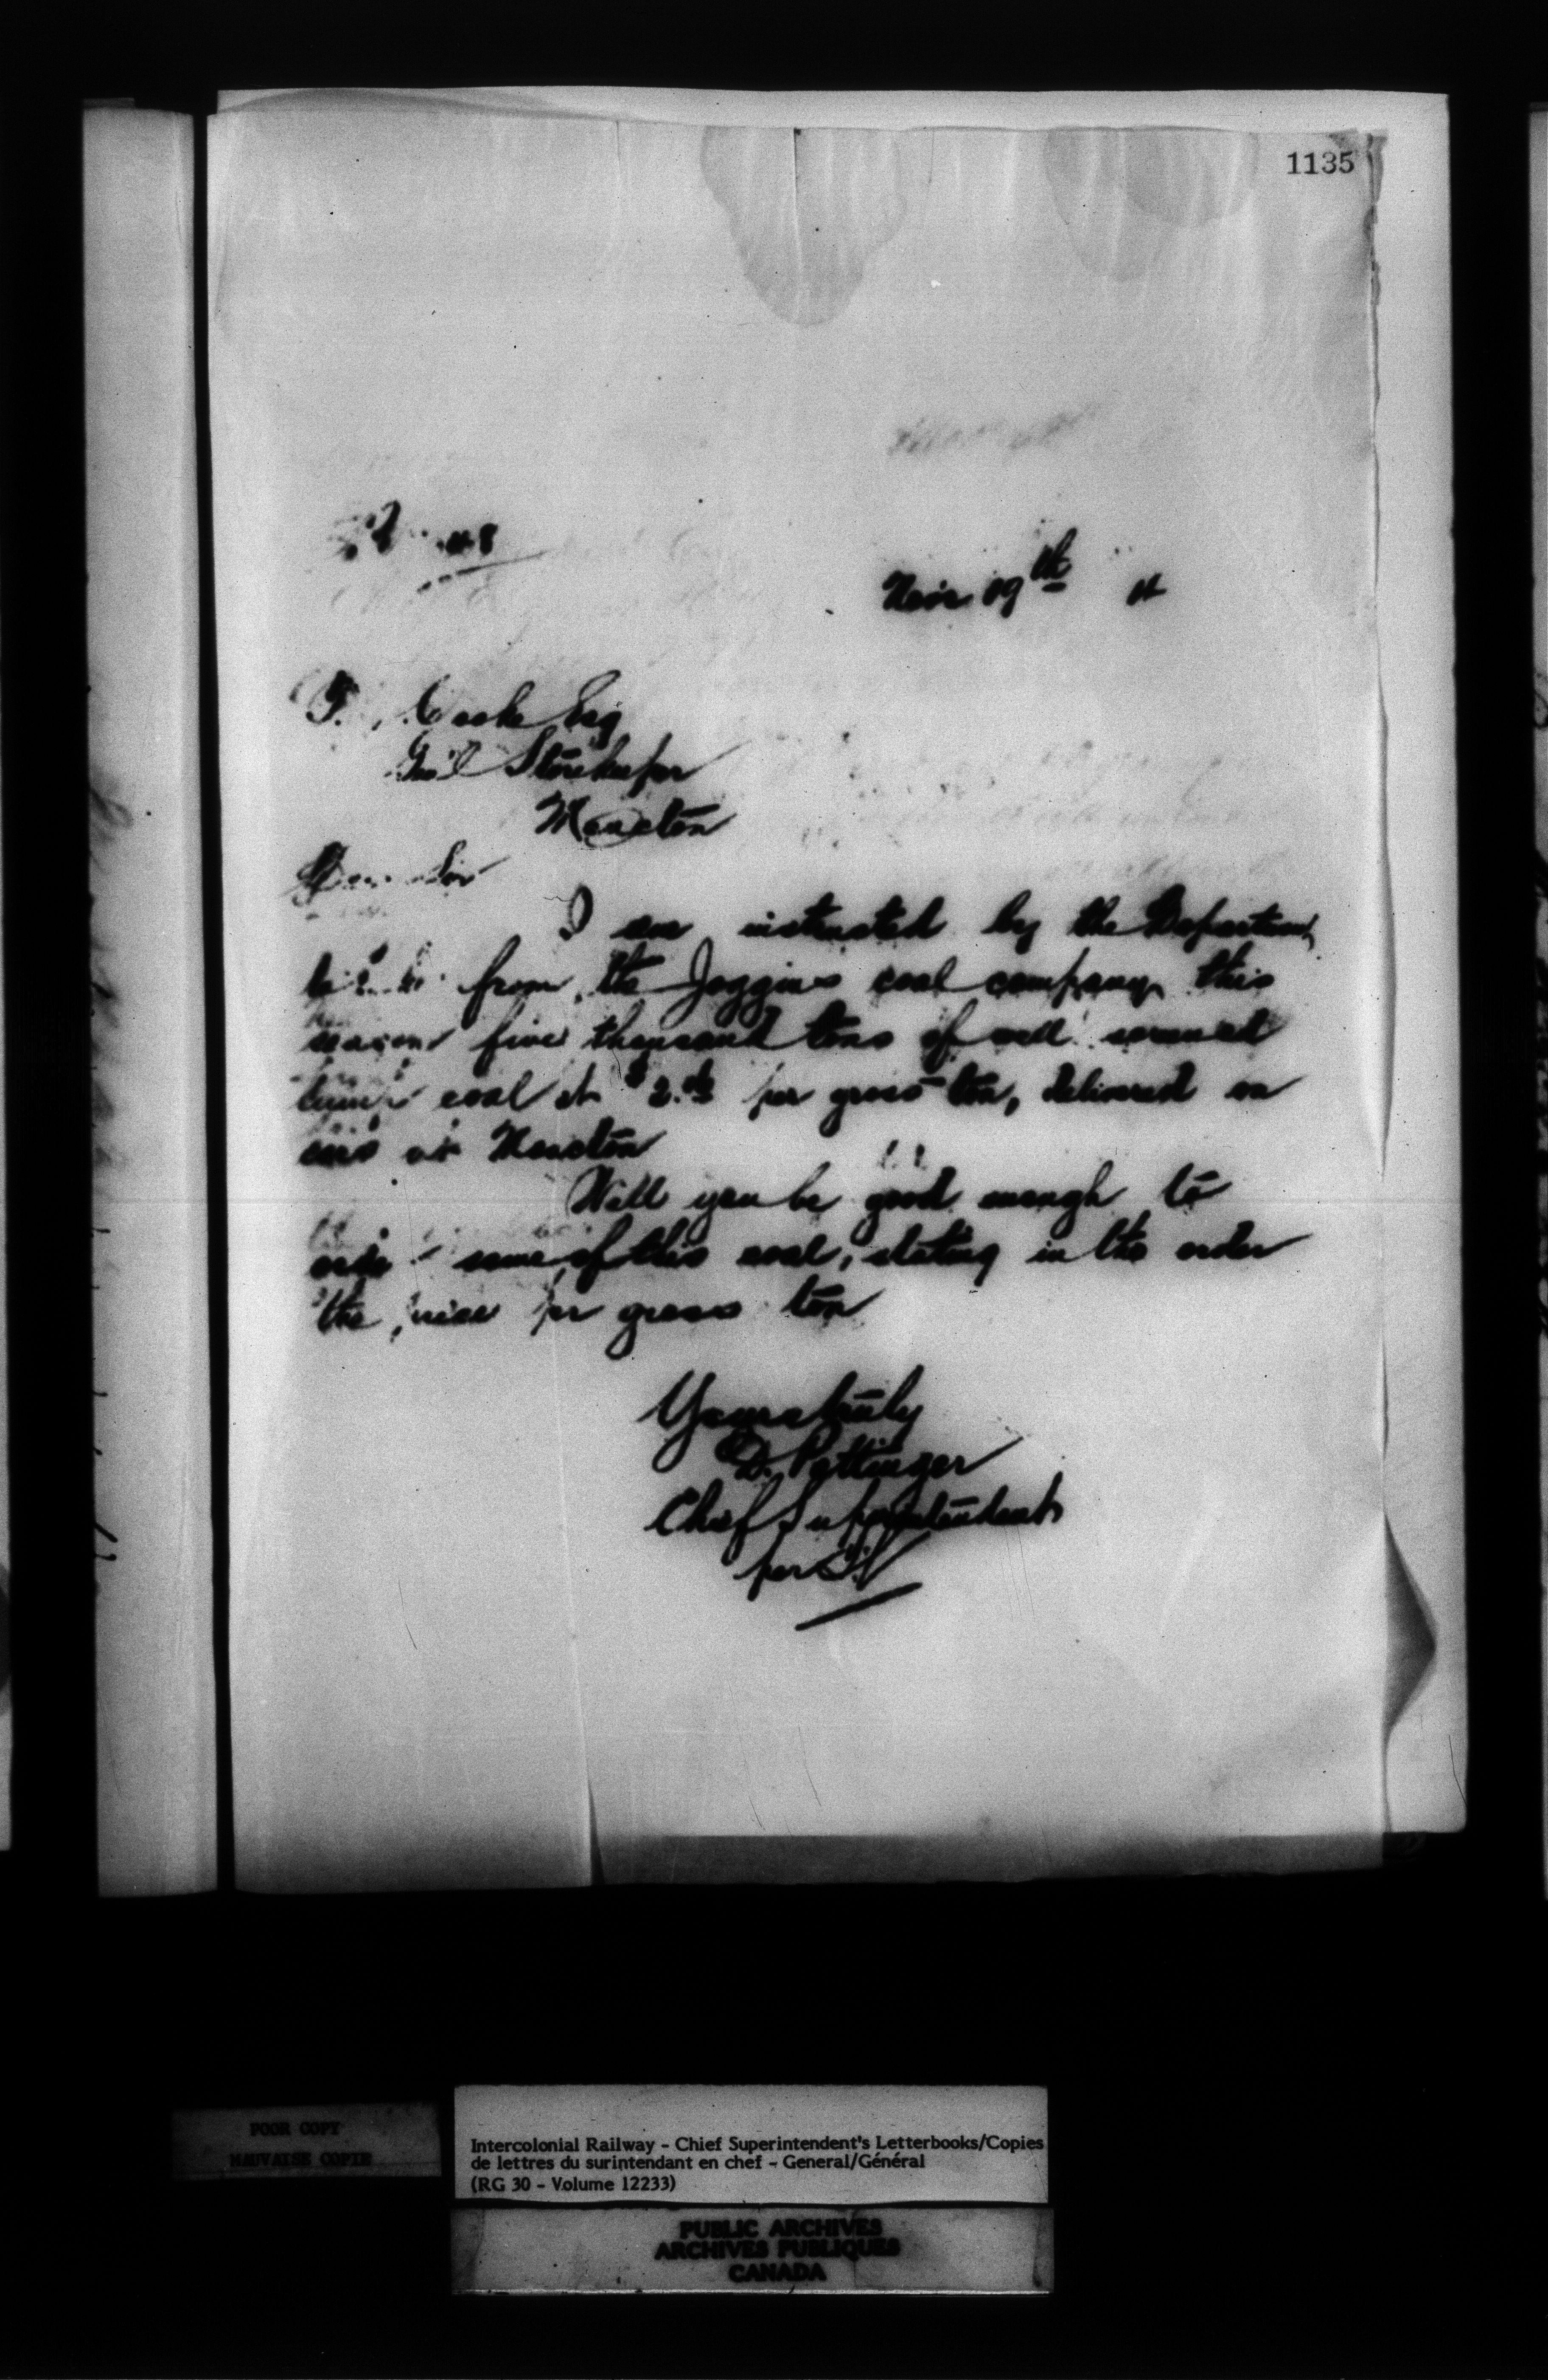 1135
Nov 19th
T. Cooke Esq
Gen'l Storekeeper
Moncton
Dear Sir
I am instructed by the Department
from the Joggins coal company this
season five thousand tons of well screened
lump coal at $2. per gross ton, delivered on
cars at Moncton
Will you be good enough to
order some of this coal, stating in the order
the price per gross ton
Yours truly
D. Pottinger
Chief Superintendent
per
POOR COPY
MAUVAISE COPIE
Intercolonial Railway - Chief Superintendent's Letterbooks/Copies
de lettres du surintendant en chef - General/Général
(RG 30 - Volume 12233)
PUBLIC ARCHIVES
ARCHIVES PUBLIQUES
CANADA